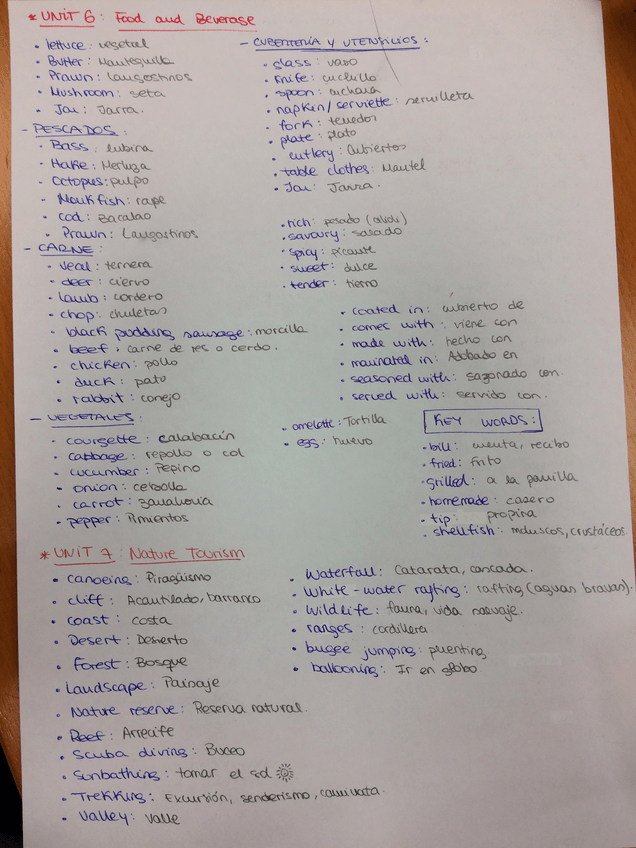 * UNIT 6: Food and Beverage
• lettuce: vegetal
• Butter: Mantequilla
• Prawn: Langostinos
• Mushroom: seta
• Jar: Jarra.
- PESCADOS:
• Bass: lubina
• Hake: Merluza
• Octopus: pulpo
• Monkfish: rape
• cod: Bacalao
• Prawn: Langostinos
- CARNE:
• veal: ternera
• deer: ciervo
• lamb: cordero
• chop: chuletas
• black pudding sausage: morcilla
• beef, carne de res o cerdo.
• chicken: pollo
• duck: pato
• rabbit: conejo
- VEGETALES:
• courgette: calabacín
• cabbage: repollo o col
• cucumber: Pepino
• onion: cebolla
• carrot: zanahoria
• pepper: Pimientos
- CUBERTERÍA Y UTENSILIOS:
• glass: vaso
• knife: cuchillo
• spoon: cuchara
• napkin/serviette: servilleta
• fork: tenedor
• plate: plato
• cutlery: Cubiertos
• table clothes: Mantel
• Jar: Jarra.
• rich: pesado
• savoury: salado
• spicy: picante
• sweet: dulce
• tender: tierno
• coated in: cubierto de
• comes with: viene con
• made with: hecho con
• marinated in: Adobado en
• seasoned with: sazonado con.
• served with: servido con.
• omelette: Tortilla
• egg: huevo
KEY WORDS:
• bill: cuenta, recibo
• fried: frito
• grilled: a la parrilla
• homemade: casero
• tip: propina
• shellfish: moluscos, crustáceos
* UNIT 7: Nature Tourism
• canoeing: Piragüismo
• cliff: Acantilado, barranco
• coast: costa
• Desert: Desierto
• Forest: Bosque
• Landscape: Paisaje
• Nature reserve: Reserva natural.
• Reef: Arrecife
• Scuba diving: Buceo
• Sunbathing: tomar el sol
• Trekking: Excursión, senderismo, caminata.
• Valley: valle
• Waterfall: Catarata, cascada.
• White-water rafting: rafting (aguas bravas).
• Wildlife: fauna, vida salvaje.
• ranges: cordillera
• bugee jumping: puenting
• ballooning: Ir en globo.